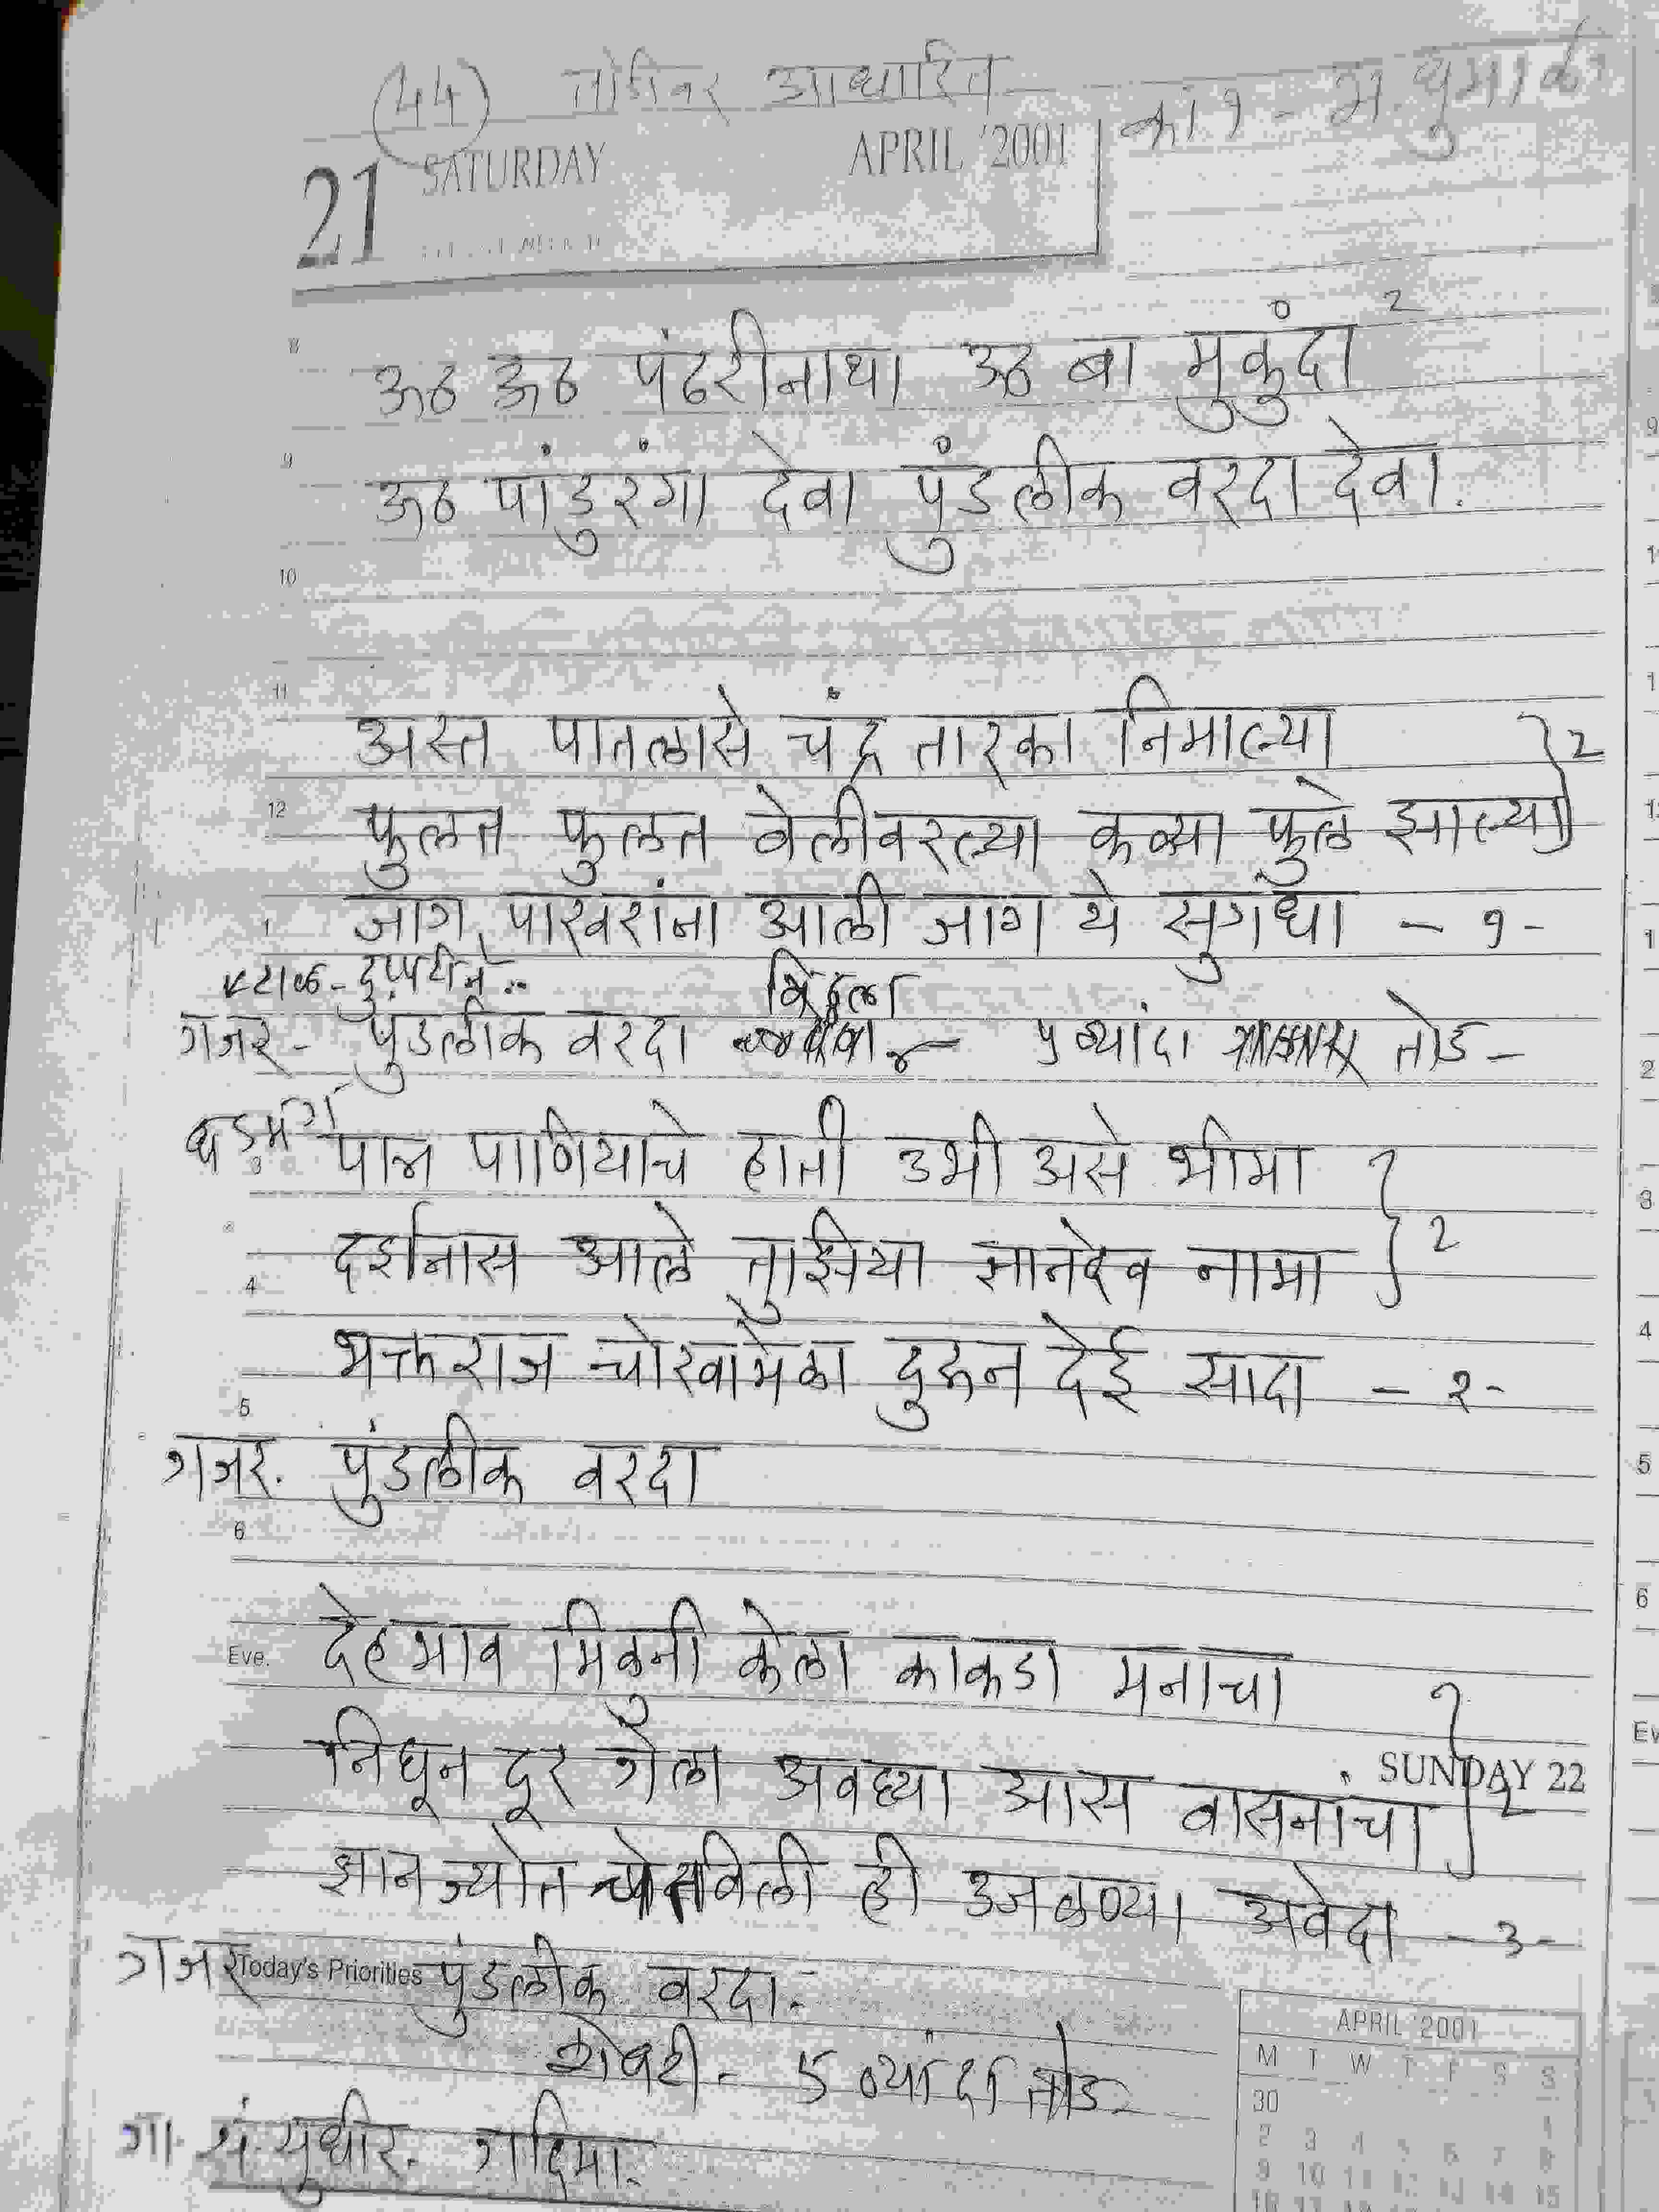 44 तोडिवर आधारित
का १ - भ. धुमाळी
21 SATURDAY APRIL '2001
ऊठ ऊठ पंढरीनाथा ऊठ बा मुकुंदा 2
ऊठ पांडुरंगा देवा पुंडलीक वरदा देवा.
अस्त पातलासे चंद्र तारका निमाल्या
फुलत फुलत वेलीवरल्या कळ्या फुले झाल्या } 2
जाग पाखरांना आली जाग ये सुगंधा - १ -
टाळ - दुप्पटीने ..
विठ्ठला
गजर - पुंडलीक वरदा - ५ व्यांदा तोड -
पात्र पाणियाचे हाती उभी असे भीमा
दर्शनास आले तुझिया ज्ञानदेव नामा } 2
भक्तराज चोखामेळा दुरून देई सादा - २ -
गजर. पुंडलीक वरदा
देहभाव मिळुनी केला काकडा मनाचा
SUNDAY 22
निघून दूर गेला अवघ्या आस वासनांचा } 2
ज्ञानज्योत चेतविली ही उजळण्या अवेदा - ३ -
गजर Today's Priorities पुंडलीक वरदा.
शेवटी - ५ व्यांदा तोड
गा. सं सुधीर. गदिमा.
APRIL '2001
M T W T F S S
30 1
2 3 4 5 6 7 8
9 10 11 12 13 14 15